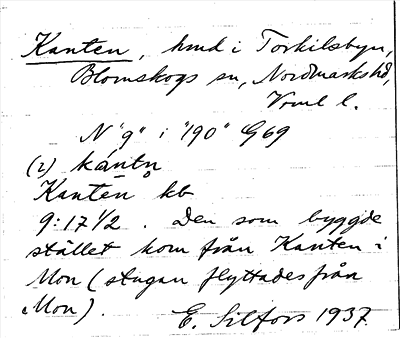 Kanten, hmd i Torkilsbyn,
Blomskogs sn, Nordmarks hd,
Vrml l.
N "9" i "190" G69
(2) kántn
Kanten kb
9:17½. Den som byggde
stället kom från Kanten i
Mon (stugan flyttades från
Mon).
E. Silfors 1937